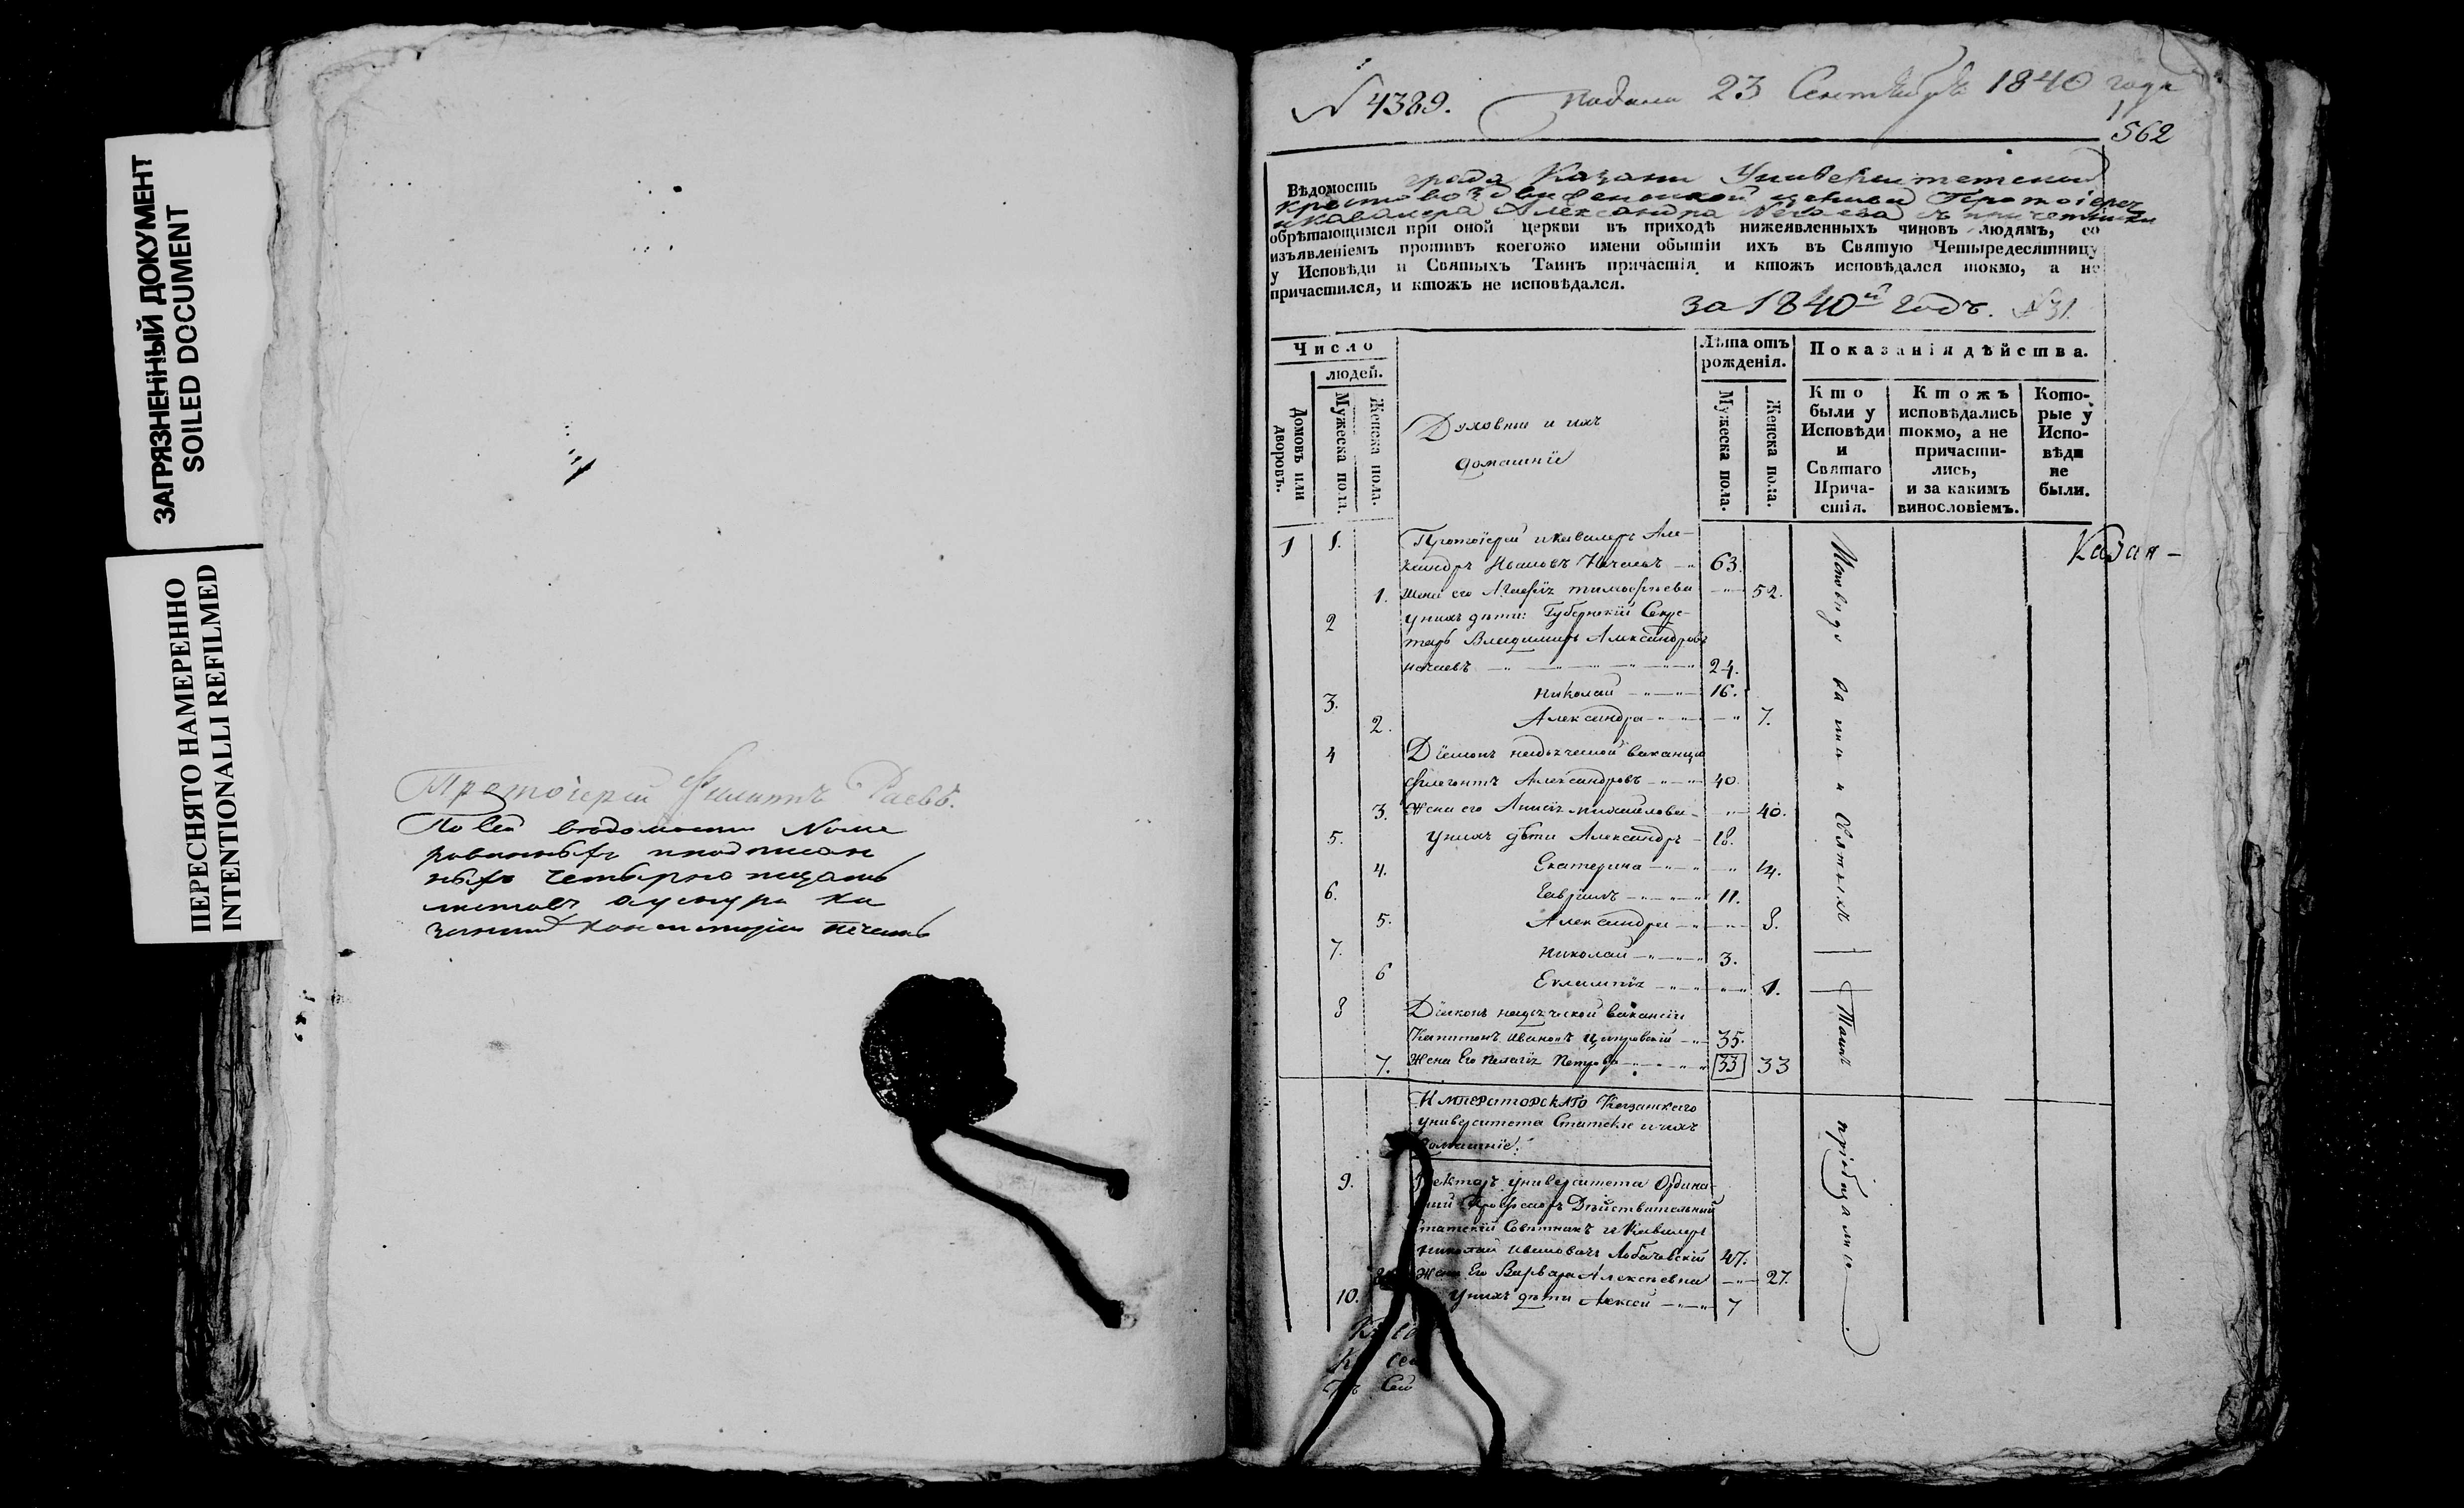 ЗАГРЯЗНЕННЫЙ ДОКУМЕНТ
SOILED DOCUMENT
ПЕРЕСНЯТО НАМЕРЕННО
INTENTIONALLI REFILMED
Протоіерей Филиппъ Раевъ.
По сей ведомости Номе
рованныхъ
ныхъ четырнатцать
листовъ
консисторіи печать
N 4389. подана 23 Сентября 1840 года
562
Вѣдомость града Казани Университетской
Крестовоздвиженской церкви Протоіерея
и кавалера Александра Нечаева съ причетники
обрѣтающимся при оной церкви въ приходѣ нижеявленныхъ чиновъ людямъ, со
изъявленіемъ противъ коегожо имени бытіи ихъ въ Святую Четыредесятницу
у Исповѣди и Святыхъ Таинъ причастія, и ктожъ исповѣдался токмо, а не
причастился, и ктожъ не исповѣдался.
за 1840й годъ. N 31.
Число
людей.
Домовъ или дворовъ.
Мужеска пола.
Женска пола.
Духовныи и ихъ
домашніе
Лѣта отъ
рожденія.
Мужеска пола.
Женска пола.
Показанія дѣйства.
Кто
были у
Исповѣди
и
Святаго
Прича-
стія.
Ктожъ
исповѣдались
токмо, а не
причасти-
лись,
и за какимъ
винословіемъ.
Кото-
рые у
Испо-
вѣди
не
были.
1 1. Протоіерей и кавалеръ Але-
ксандръ Ивановъ Нечаевъ 63.
1. Жена его Тимофѣева 52.
2 У нихъ дѣти: Губернскій Секре-
тарь Владимиръ Александровъ
Нечаевъ 24.
3. Николай 16.
2. Александра 7.
4 Діаконъ на дьяческой вакансіи
Флегонтъ Александровъ 40.
3. Жена его Анисія Михайлова 40.
5. У нихъ дѣти Александръ 18.
4. Екатерина 14.
6. Гавріилъ 11.
5. Александра 8.
7. Николай 3.
6 Евлампія 1.
8 Діаконъ на дьяческой вакансіи
Капитонъ Ивановъ 35.
7. Жена Его Пелагія Петрова 33 33
Исповѣдались и Святыхъ Таинъ пріобщались
Казан-
ИМПЕРАТОРСКАГО Казанскаго
Университета Статскіе и ихъ
домашніе:
9. Ректоръ Университета Ордина-
рный Профессоръ Дѣйствительный
Статскій Совѣтникъ и Кавалеръ
Николай Ивановичъ Лобачевскій 47.
8 Жена Его Варвара Алексѣевна 27.
10. У нихъ дѣти Алексѣй 7